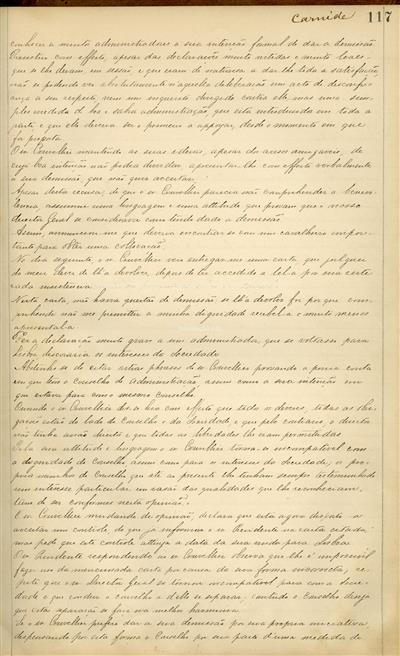 Carnide 117
conheceu a muito administradores a sua intenção formal de dar a demissão
com effeito, apesar das declarações muito nitidas e muito leaes
que se lhe deram, em sessão, e que eram de natureza a dar lhe toda a satisfação
não se podendo ver absolutamente n'aquella deliberação um acto de desconfi-
ança a seu respeito nem um inquerito dirigido contra elle mas uma sim-
ples medida de boa e sabia administração, que está introduzida em toda a
parte e que elle devera ser o primeiro a appoyar, desde o momento em que
foi proposta
O Sr Conselheiro mantendo as suas ideias, apesar do acceso amigavel, de
cuja boa intenção não podia duvidar, apresentou lhe com effeito verbalmente
a sua demissão, que não quiz acceitar.
Apesar desta recusa, de que o Sr Conselheiro pareceu não comprehender a benevo-
lencia, assumiu uma linguagem e uma attitude que provam que o nosso
director Geral se considerava como tendo dado a demissão
Assim, annunciou me que deveria encontrar se com um cavalheiro impor-
tante para obter uma collocação.
No dia seguinte, o Sr Conselheiro veiu entregar me uma carta que julguei
do meu dever de lh'a devolver, depois de ter accedido a lel-a por sua reite-
rada insistencia
Nesta carta, não havia questão de demissão se lh'a devolvi foi por que com-
prehendi não me permittir a minha dignidade recebel-a e muito menos
apresental-a
Fez a declaração muito grave a um administrador, que se voltasse para
Lisboa descuraria os interesses da Sociedade
Abstenho-me de citar outras phrases do Sr Conselheiro provando a pouca conta
em que tem o Conselho de Administração, assim como a sua intenção em
que estava para com o mesmo Conselho
Quando o Sr Conselheiro diz a isso com effeito que todos os deveres, todas as obri-
gações estão do lado do Conselho e da Sociedade e que pelo contrario, o director
não tinha senão direitos e que todas as liberdades lhe eram permittidas
Pela sua attitude e linguagem o Sr Conselheiro torna-se incompativel com
a dignidade do Conselho assim como para os interesses da Sociedade, os pro-
prios membros do Conselho que até ao presente lhe tinham sempre testemunhado
um interesse particular em razão das qualidades que lhe reconheciam,
teem de ser conformes nesta opinião.
O Sr Conselheiro mudando de opinião, declara que está agora disposto a
acceitar um controle, do que já informou o Sr Presidente na carta citada
mas pede que este controle attinja a data da sua vinda para Lisboa
O Sr Presidente respondendo ao Sr Conselheiro observa que lhe é impossivel
fazer uso da mencionada carta por causa da sua forma incorrecta, re-
pete que o Sr Director Geral se tornou incompativel para com a Socie-
dade e que conduz o conselho a d'elle se separar, comtudo o Conselho deseja
que esta separação se faça na melhor harmonia
Se o Sr Conselheiro prefere dar a sua demissão por sua propria iniciativa,
dispensando por esta forma o Conselho por sua parte d'uma medida de